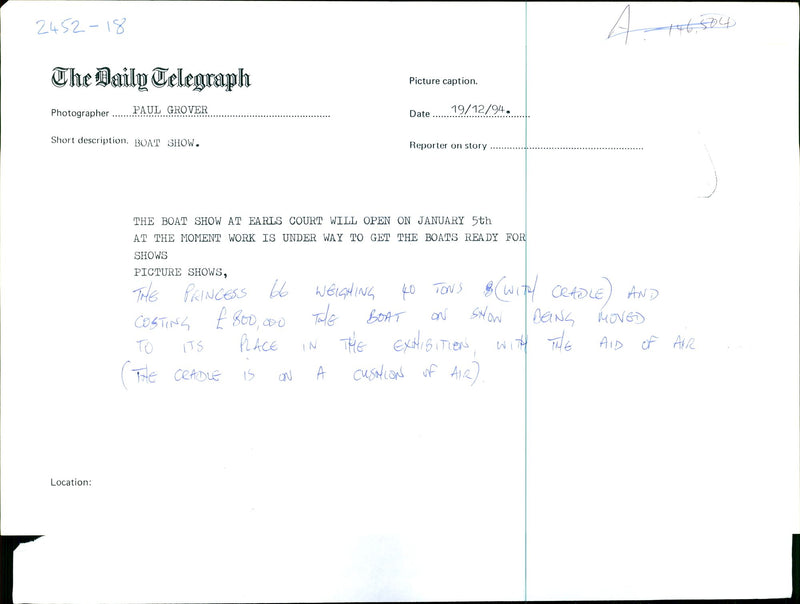 2452-18
A. 146,504
The Daily Telegraph
Picture caption.
Photographer PAUL GROVER
Date 19/12/94.
Short description. BOAT SHOW.
Reporter on story
THE BOAT SHOW AT EARLS COURT WILL OPEN ON JANUARY 5th
AT THE MOMENT WORK IS UNDER WAY TO GET THE BOATS READY FOR
SHOWS
PICTURE SHOWS,
THE PRINCESS 66 WEIGHING 40 TONS (WITH CRADLE) AND
COSTING £800,000 THE BOAT ON SHOW BEING MOVED
TO ITS PLACE IN THE EXHIBITION, WITH THE AID OF AIR
(THE CRADLE IS ON A CUSHION OF AIR).
Location: